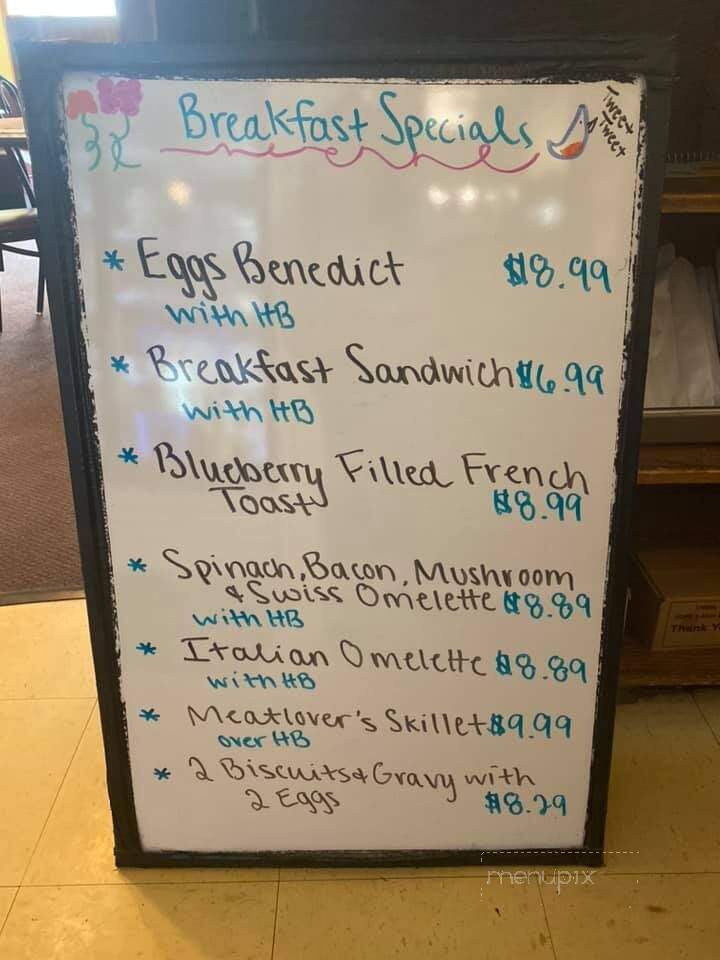 Breakfast Specials
Tweet
Tweet
* Eggs Benedict $8.99
with HB
* Breakfast Sandwich $6.99
with HB
* Blueberry Filled French
Toast $8.99
* Spinach, Bacon, Mushroom
& Swiss Omelette $8.89
with HB
* Italian Omelette $8.89
with HB
* Meatlover's Skillet $9.99
over HB
* 2 Biscuits & Gravy with
2 Eggs $8.29
Thank Y
menupix